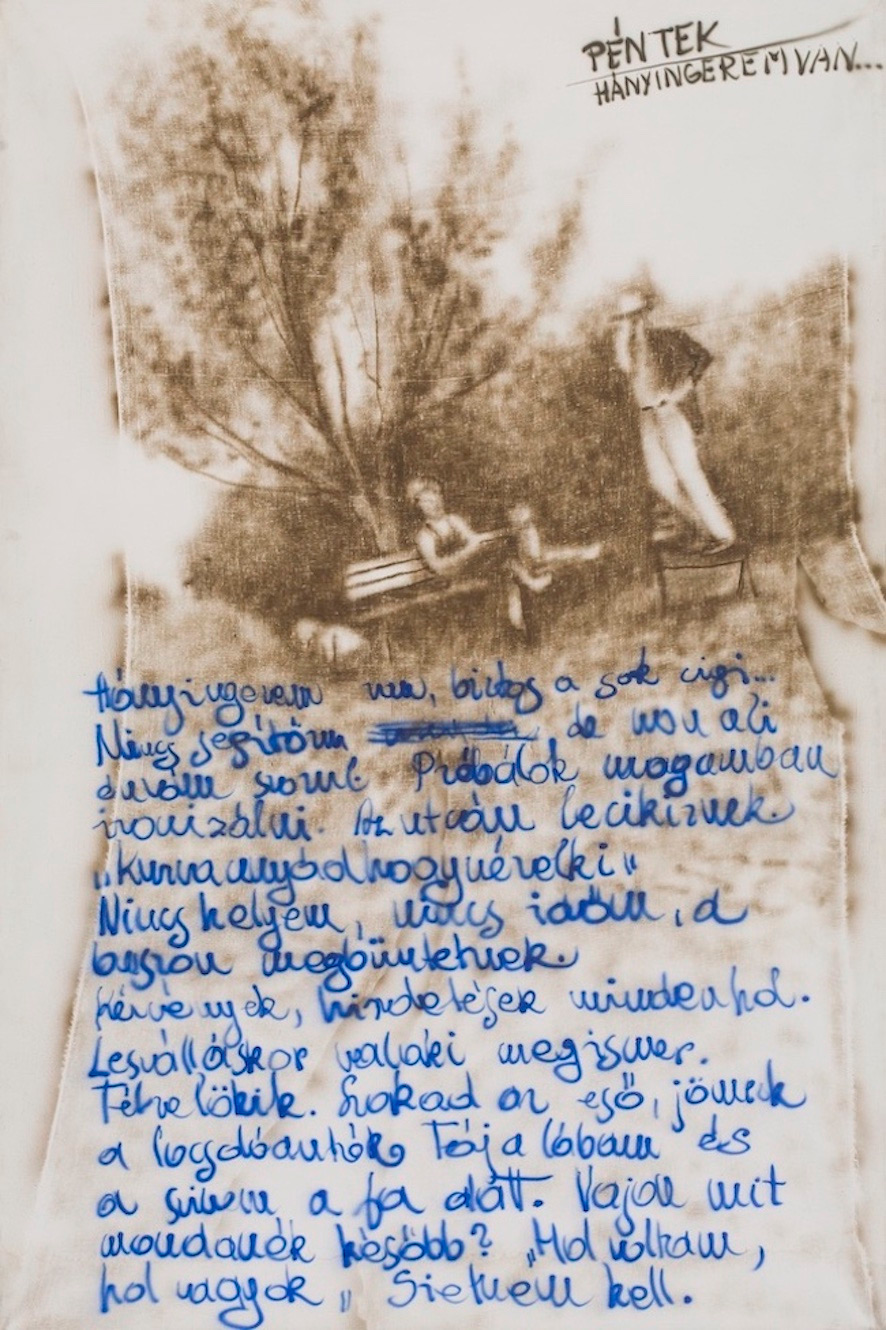 PÉNTEK
HÁNYINGEREM VAN...
Hányingerem van, biztos a sok cigi...
Nincs segítőm de won ali
durám somt Próbálok magamban
ironizálni. Az utcán lecikiznek
„Kurvaanyádhogynézelki"
Nincs helyem, nincs időm, a
buszon megbüntetnek.
Kérvények, hirdetések mindenhol.
Leszálláskor valaki megismer.
Félrelökik. Szakad az eső, jönnek
a locsolóautók Fáj a lábam és
a szívem a fa alatt. Vajon mit
mondanék később? „Hol voltam,
hol vagyok„ Sietnem kell.